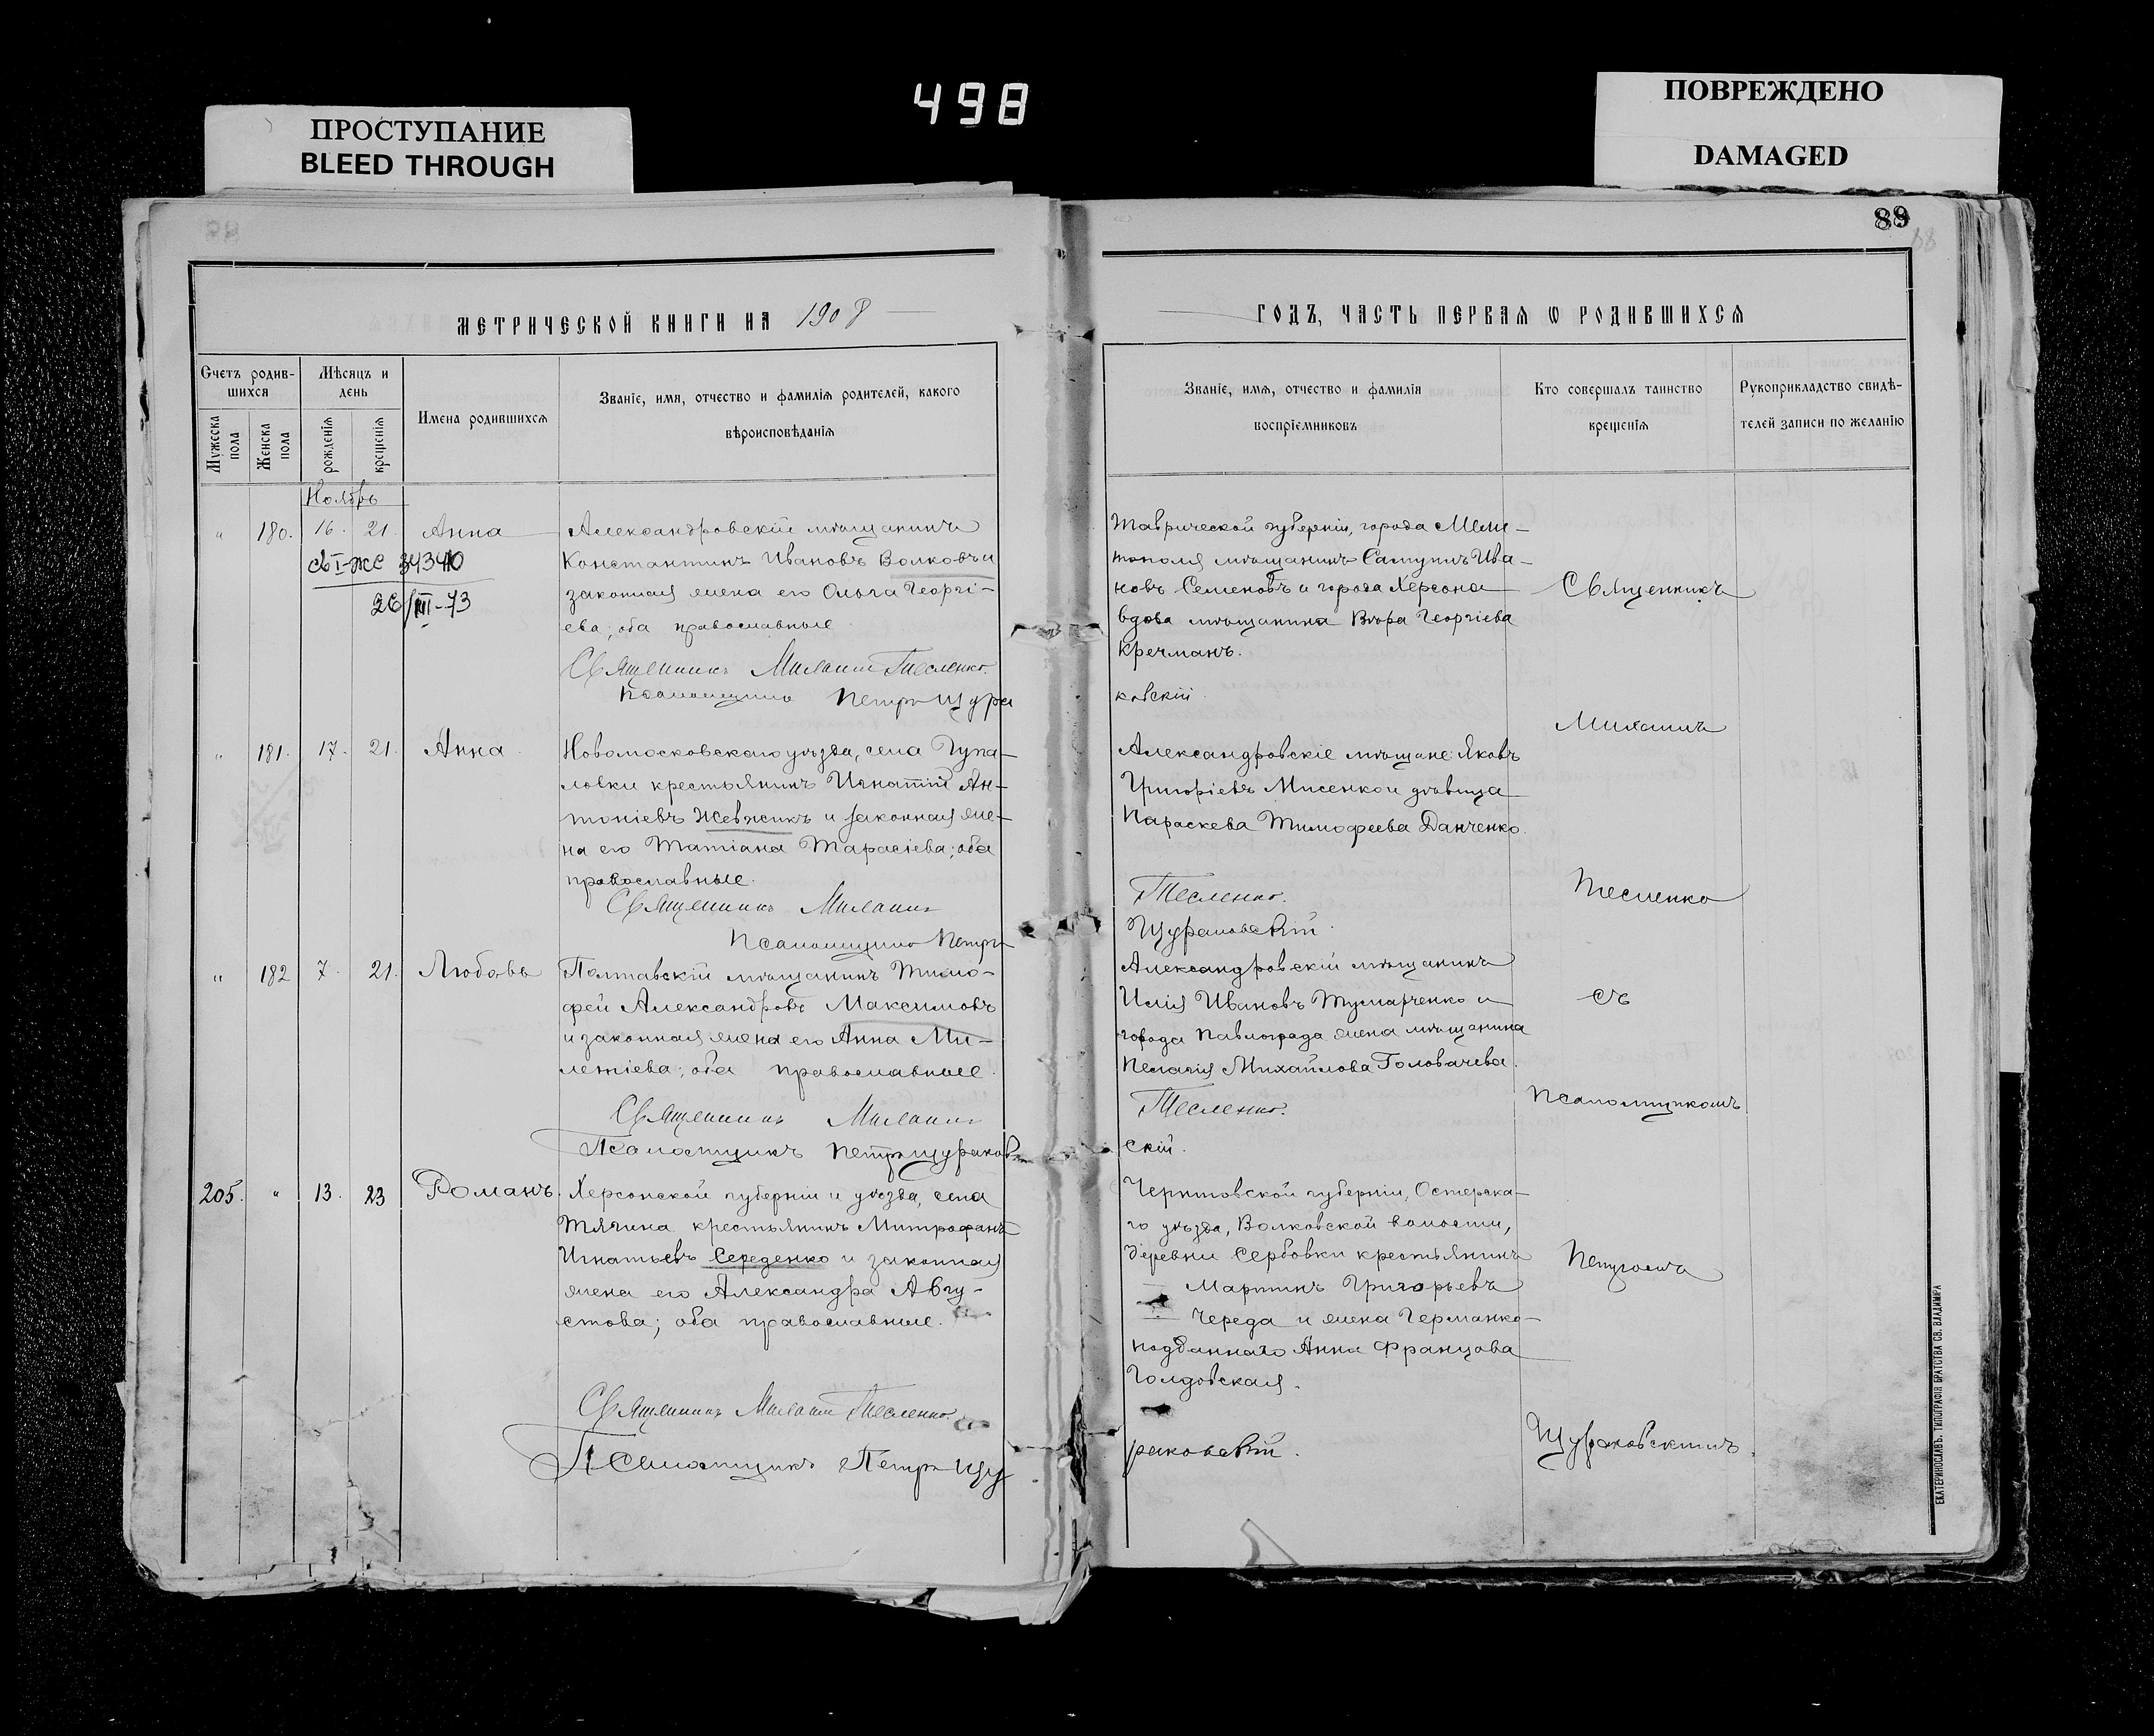 498
ПРОСТУПАНИЕ
BLEED THROUGH
ПОВРЕЖДЕНО
DAMAGED
89
МЕТРИЧЕСКОЙ КНИГИ НА 1908
Счетъ родив-
шихся
Мѣсяцъ и
день
Мужеска
пола
Женска
пола
рожденія
крещенія
Имена родившихся
Званіе, имя, отчество и фамилія родителей, какого
вѣроисповѣданія
Ноябрь
" 180. 16. 21. Анна
св I-ЖС 34340
26/III-73
Александровскій мѣщанинъ
Константинъ Ивановъ Волковъ и
законная жена его Ольга Георгі-
ева; оба православные
Священникъ Михаилъ Тесленко.
Псаломщикъ Петръ Щура
" 181. 17. 21. Анна
Новомосковскаго уѣзда, села Гупа-
ловки крестьянинъ Игнатій Ан-
тоніевъ Жевжикъ и законная же-
на его Татіана Тарасіева; оба
православные.
Священникъ Михаилъ
Псаломщикъ Петръ
" 182 7. 21. Любовь
Полтавскій мѣщанинъ Тимо-
фей Александровъ Максимовъ
и законная жена его Анна Ми-
летіева; оба православные.
Священникъ Михаилъ
Псаломщикъ Петръ Щураков
205. " 13. 23 Романъ.
Херсонской губерніи и уѣзда, села
Тягина крестьянинъ Митрофанъ
Игнатьевъ Середенко и законная
жена его Александра Авгу-
стова; оба православные.
Священникъ Михаилъ Тесленко.
Псаломщикъ Петръ Щу
ГОДЪ, ЧАСТЬ ПЕРВАЯ Ѡ РОДИВШИХСЯ
Званіе, имя, отчество и фамилія
воспріемниковъ
Кто совершалъ таинство
крещенія
Рукоприкладство свидѣ-
телей записи по желанію
Таврической губерніи, города Мели-
тополя мѣщанинъ Ива-
новъ Семеновъ и города Херсона
вдова мѣщанина Вѣра Георгіева
Кречманъ.
ковскій.
Александровскіе мѣщане: Яковъ
Григоріевъ Мисенко и дѣвица
Параскева Тимофеева Данченко.
Тесленко.
Щураковскій.
Александровскій мѣщанинъ
Илія Ивановъ и
города Павлограда жена мѣщанина
Пелагія Михайлова Головачева.
Тесленко.
скій.
Черниговской губерніи, Остерска-
го уѣзда, Волковской волости,
деревни Сербовки крестьянинъ
Мартинъ Григорьевъ
Череда и жена Германко-
подданнаго Анна Францова
Голдовская.
раковскій.
Священникъ
Михаилъ
Тесленко
съ
Псаломщикомъ
Петромъ
Щураковскимъ.
ЕКАТЕРИНОСЛАВЪ. ТИПОГРАФІЯ БРАТСТВА СВ. ВЛАДИМІРА